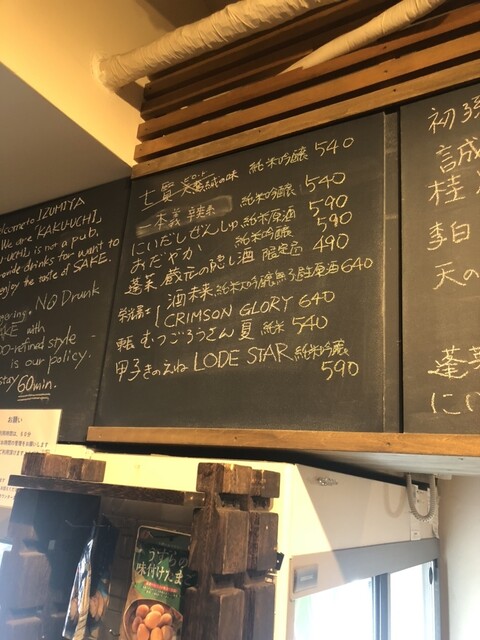 Welcome to IZUMIYA
We are "KAKU-UCHI,
is not a pub.
provide drinks for want to
enjoy the taste of SAKE.
NO Drunk
with
-refined style
is our policy.
stay 60min.
お願い
七賢 天鵞絨の味 純米吟醸 540
一本義 辛爽系 純米吟醸 540
にいだしぜんしゅ 純米原酒 590
おだやか 純米吟醸 590
蓬莱 蔵元の隠し酒 限定品 490
栄光冨士 酒未来 純米大吟醸無濾過原酒 640
CRIMSON GLORY 640
東長 むつごろうさん夏 純米 540
甲子きのえね LODE STAR 純米吟醸
590
初孫
誠
桂
李白
天の
蓬莱
にい
うずらの
味付けたまご